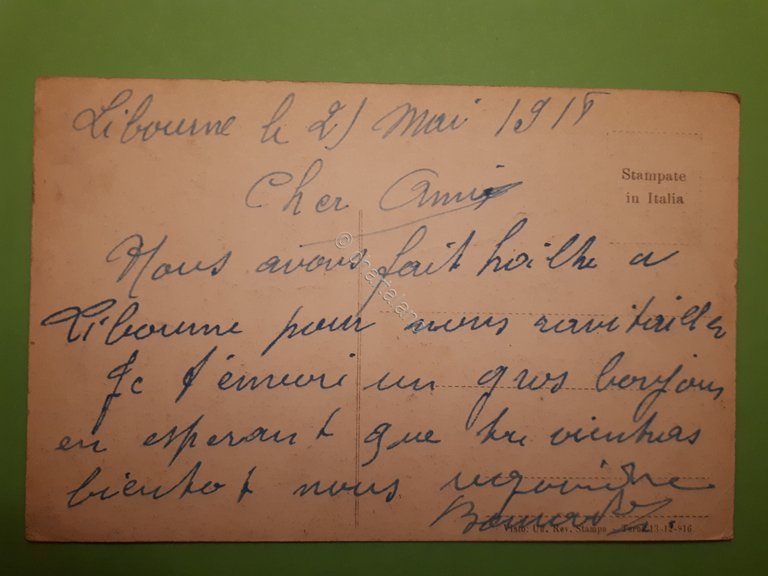 Libourne le 21 Mai 1918
Stampate
in Italia
Cher Ami
Nous avons fait hailte a
Libourne pour nous ravitailler
Je t'envoi un gros bonjour
en esperant que tu viendras
bientot nous rejoindre
Visto: Uff. Rev. Stampa - Torino 13-12-916